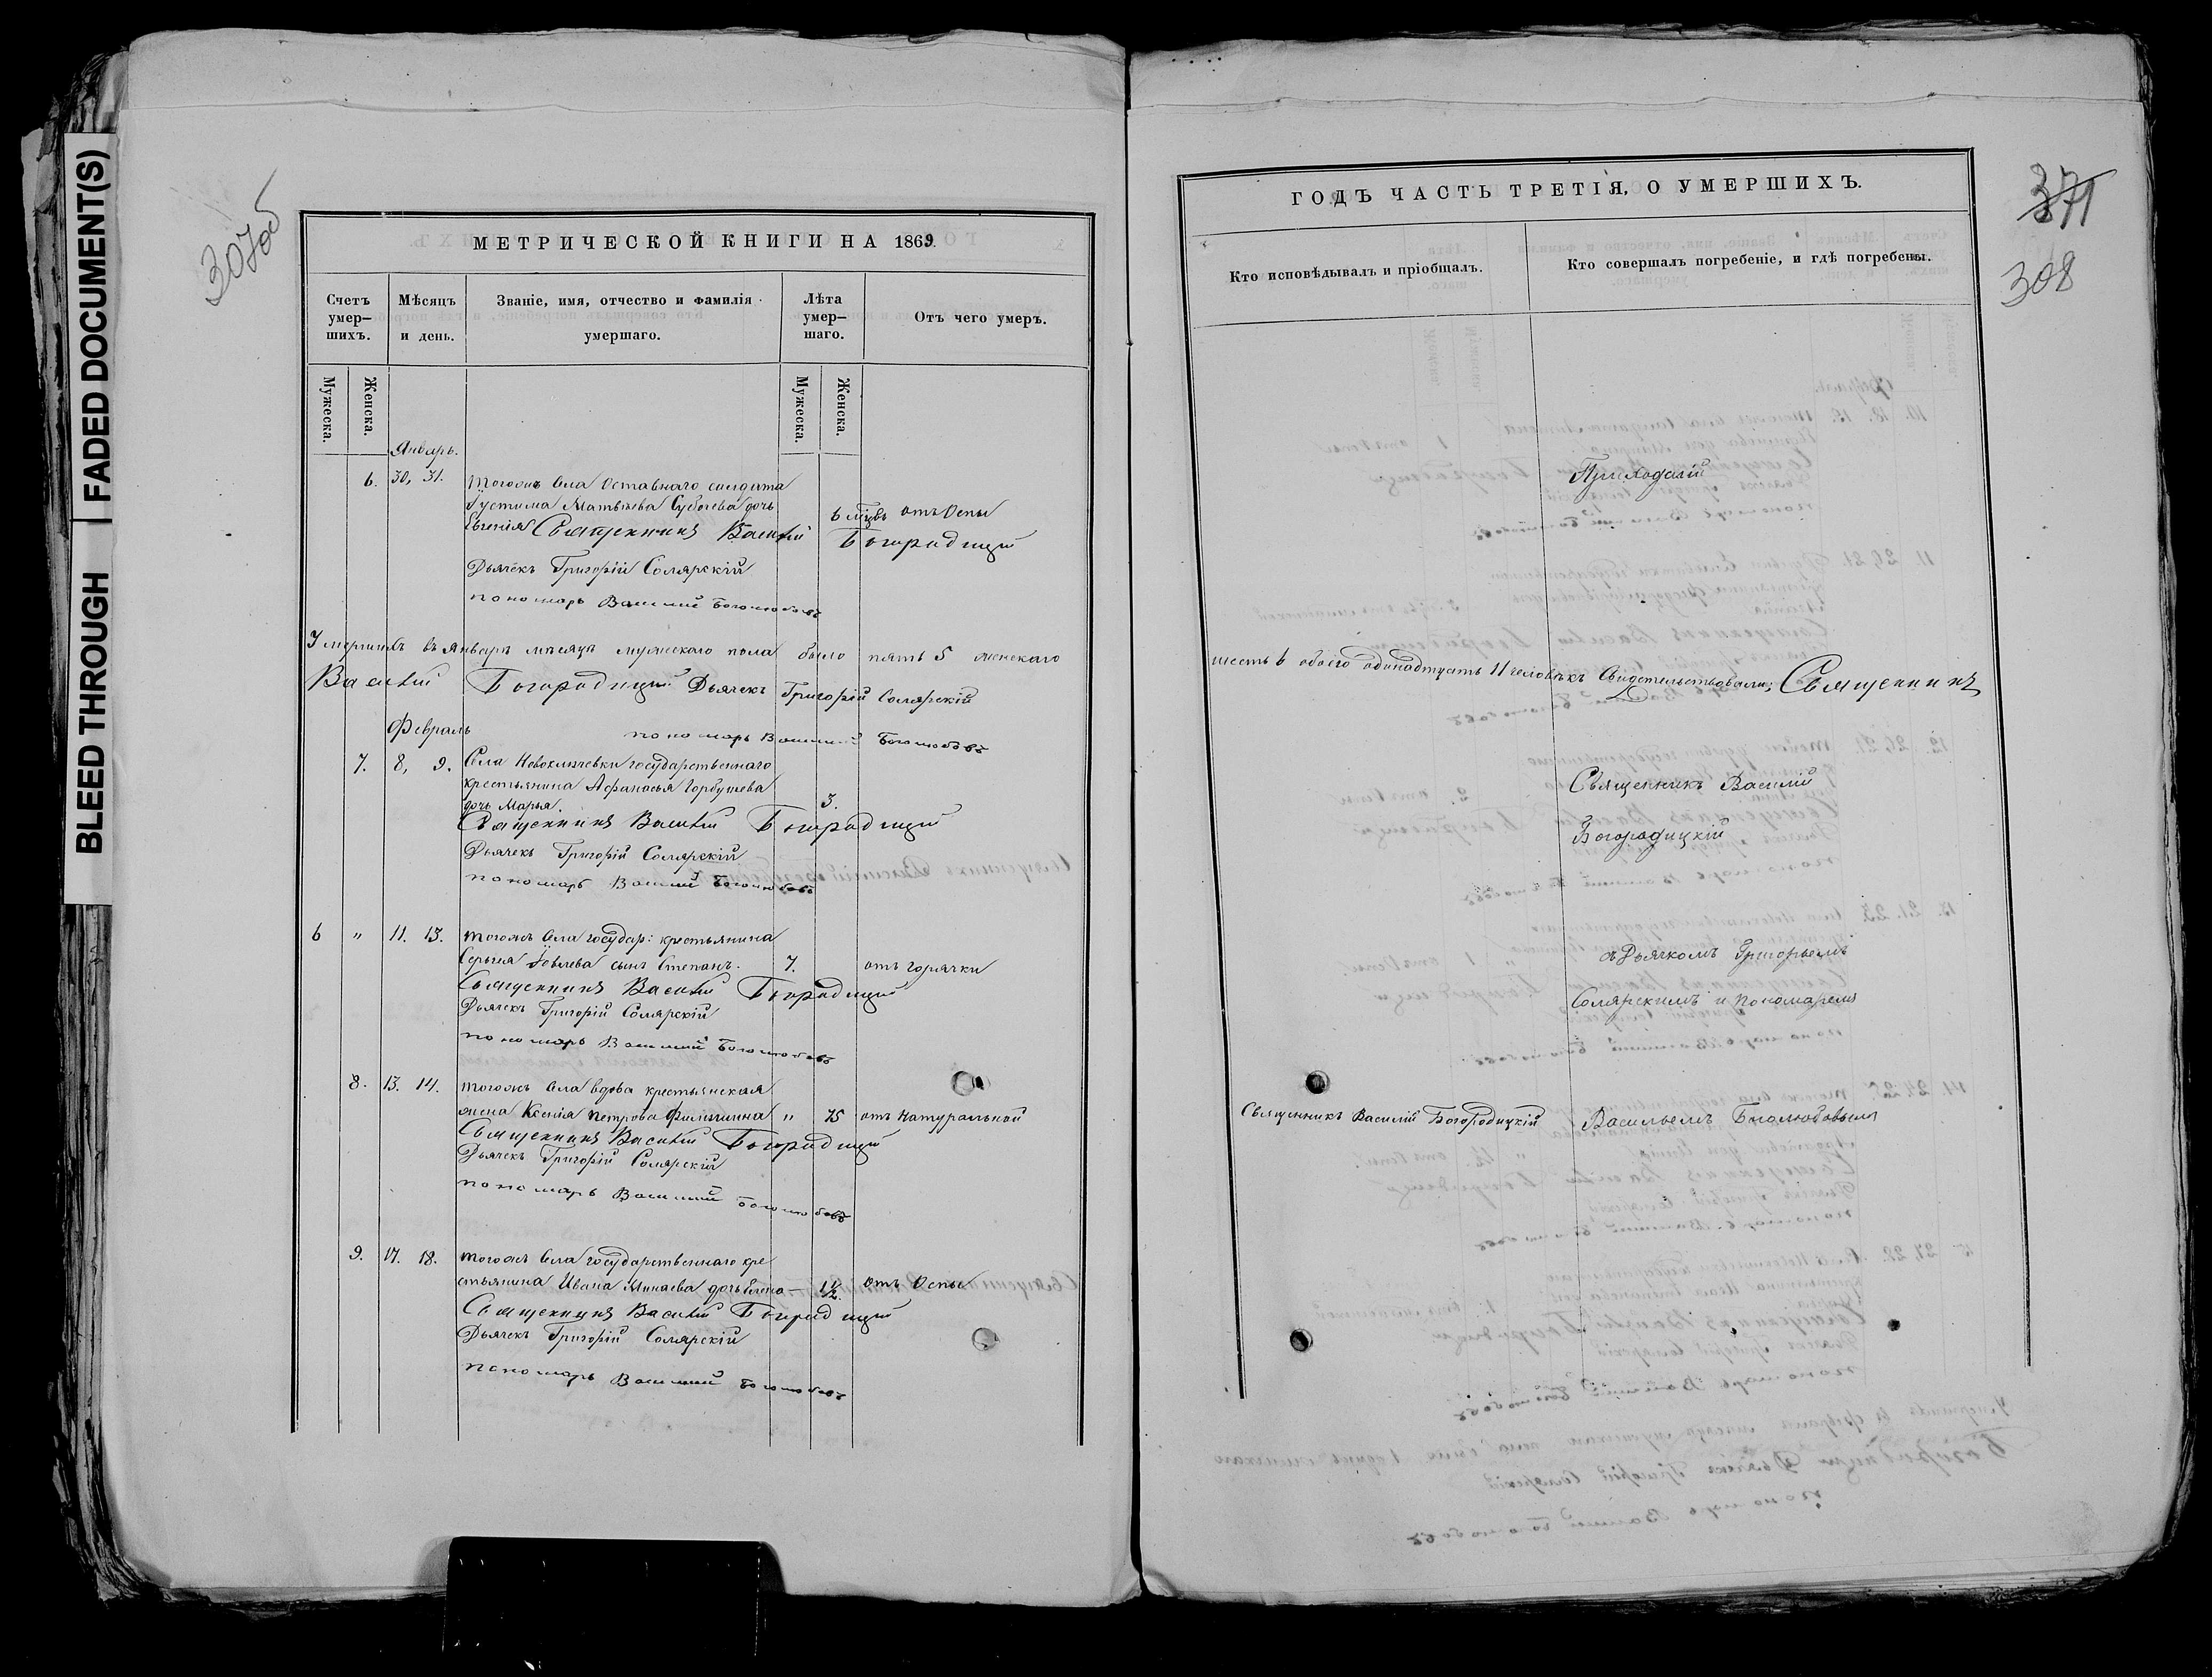 BLEED THROUGH | FADED DOCUMENT(S)
307об
МЕТРИЧЕСКОЙ КНИГИ НА 1869.
Счетъ умер-шихъ.
Мѣсяцъ и день.
Званіе, имя, отчество и фамилія умершаго.
Лѣта умер-шаго.
Отъ чего умеръ.
Мужеска.
Женска.
Мужеска.
Женска.
Январь.
6. 30, 31. тогожъ села Оставнаго солдата
Густима Матвѣева дочь
Евгенія 6 мцвъ отъ Оспы
Священникъ Василій Богородицкій
Дьячекъ Григорій Солярскій
пономарь Василий Боголюбовъ
Умершихъ въ Январѣ мѣсяцѣ мужескаго пола было пять 5 женскаго
Василій Богородицкій Дьячекъ Григорій Солярскій
пономарь Василий Боголюбовъ
Февраль
7. 8, 9. Села Новоключевки государственнаго
крестьянина Афанасья Горбушева
дочь Марья. 3.
Священникъ Василій Богородицкій
Дьячекъ Григорій Солярскій
пономарь Василий Боголюбовъ
6 " 11. 13. тогожъ Села государ: крестьянина
Сергея сынъ Степанъ. 7. отъ горячки
Священникъ Василій Богородицкій
Дьячекъ Григорій Солярскій
пономарь Василий Боголюбовъ
8. 13. 14. тогожъ Села вдова крестьянская
жена Ксенія Петрова " 75 отъ натуральной
Священникъ Василій Богородицкій
Дьячекъ Григорій Солярскій
пономарь Василий Боголюбовъ
9. 17. 18. тогожъ Села государственнаго кре
стьянина Ивана Минаева дочь Елена — 1/2. отъ Оспы
Священникъ Василій Богородицкій
Дьячекъ Григорій Солярскій
пономарь Василий Боголюбовъ
ГОДЪ ЧАСТЬ ТРЕТІЯ, О УМЕРШИХЪ.
371
308
Кто исповѣдывалъ и пріобщалъ.
Кто совершалъ погребеніе, и гдѣ погребены.
шесть 6 обоего одинадтцать 11 человѣкъ Свидетельствовали; Священникъ
Священникъ Василій
Богородицкій
съ Дьячкомъ Григорьемъ
Солярскимъ и пономаремъ
Священникъ Василій Богородицкій
Васильемъ Боголюбовымъ